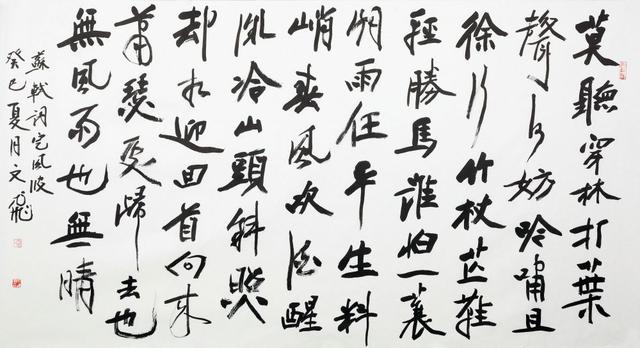 莫聽穿林打葉
聲何妨吟嘯且
徐行竹杖芒鞋
輕勝馬誰怕一蓑
烟雨任平生料
峭春風吹酒醒
微冷山頭斜照
却相迎回首向来
蕭瑟處歸去也
無風雨也無晴
蘇軾詞定風波
癸巳夏月文飛